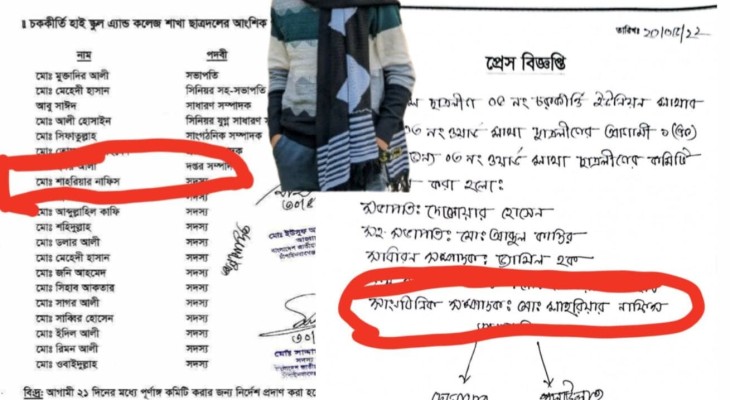 ॥ চককীর্তি হাই স্কুল এ্যান্ড কলেজ শাখা ছাত্রদলের আংশিক
নাম পদবী
মোঃ মুক্তাদির আলী সভাপতি
মোঃ মেহেদী হাসান সিনিয়র সহ-সভাপতি
আবু সাঈদ সাধারণ সম্পাদক
মোঃ আলী হোসাইন সিনিয়র যুগ্ন সাধারণ
মোঃ সিফাতুল্লাহ সাংগঠনিক সম্পাদক
আলী দপ্তর সম্পা
মোঃ শাহরিয়ার নাফিস সদস্য
মোঃ আব্দুল্লাহিল কাফি সদস্য
মোঃ শহিদুল্লাহ সদস্য
মোঃ ডলার আলী সদস্য
মোঃ মেহেদী হাসান সদস্য
মোঃ জনি আহমেদ সদস্য
মোঃ সিহাব আকতার সদস্য
মোঃ সাগর আলী সদস্য
মোঃ সাব্বির হোসেন সদস্য
মোঃ ইদিল আলী সদস্য
মোঃ রিমন আলী সদস্য
মোঃ ওবাইদুল্লাহ সদস্য
বিঃদ্রঃ আগামী ২১ দিনের মধ্যে পূর্ণাঙ্গ কমিটি করার জন্য নির্দেশ প্রদান করা হ
মোঃ ইউসুফ
তারিখঃ
প্রেস বিজ্ঞপ্তি
ছাত্রলীগ ০৫ নং চককীর্তি ইউনিয়ন শাখার
০৩ নং ওয়ার্ড শাখা ছাত্রলীগের আগামী ১ (এক)
০৩ নং ওয়ার্ড শাখা ছাত্রলীগের কমিটি
করা হলোঃ
সভাপতিঃ দেলোয়ার হোসেন
সহ-সভাপতিঃ মোঃ আব্দুল কাদির
সাধারন সম্পাদকঃ তামিল হক
সাংগঠনিক সম্পাদকঃ মোঃ শাহরিয়ার নাফিস